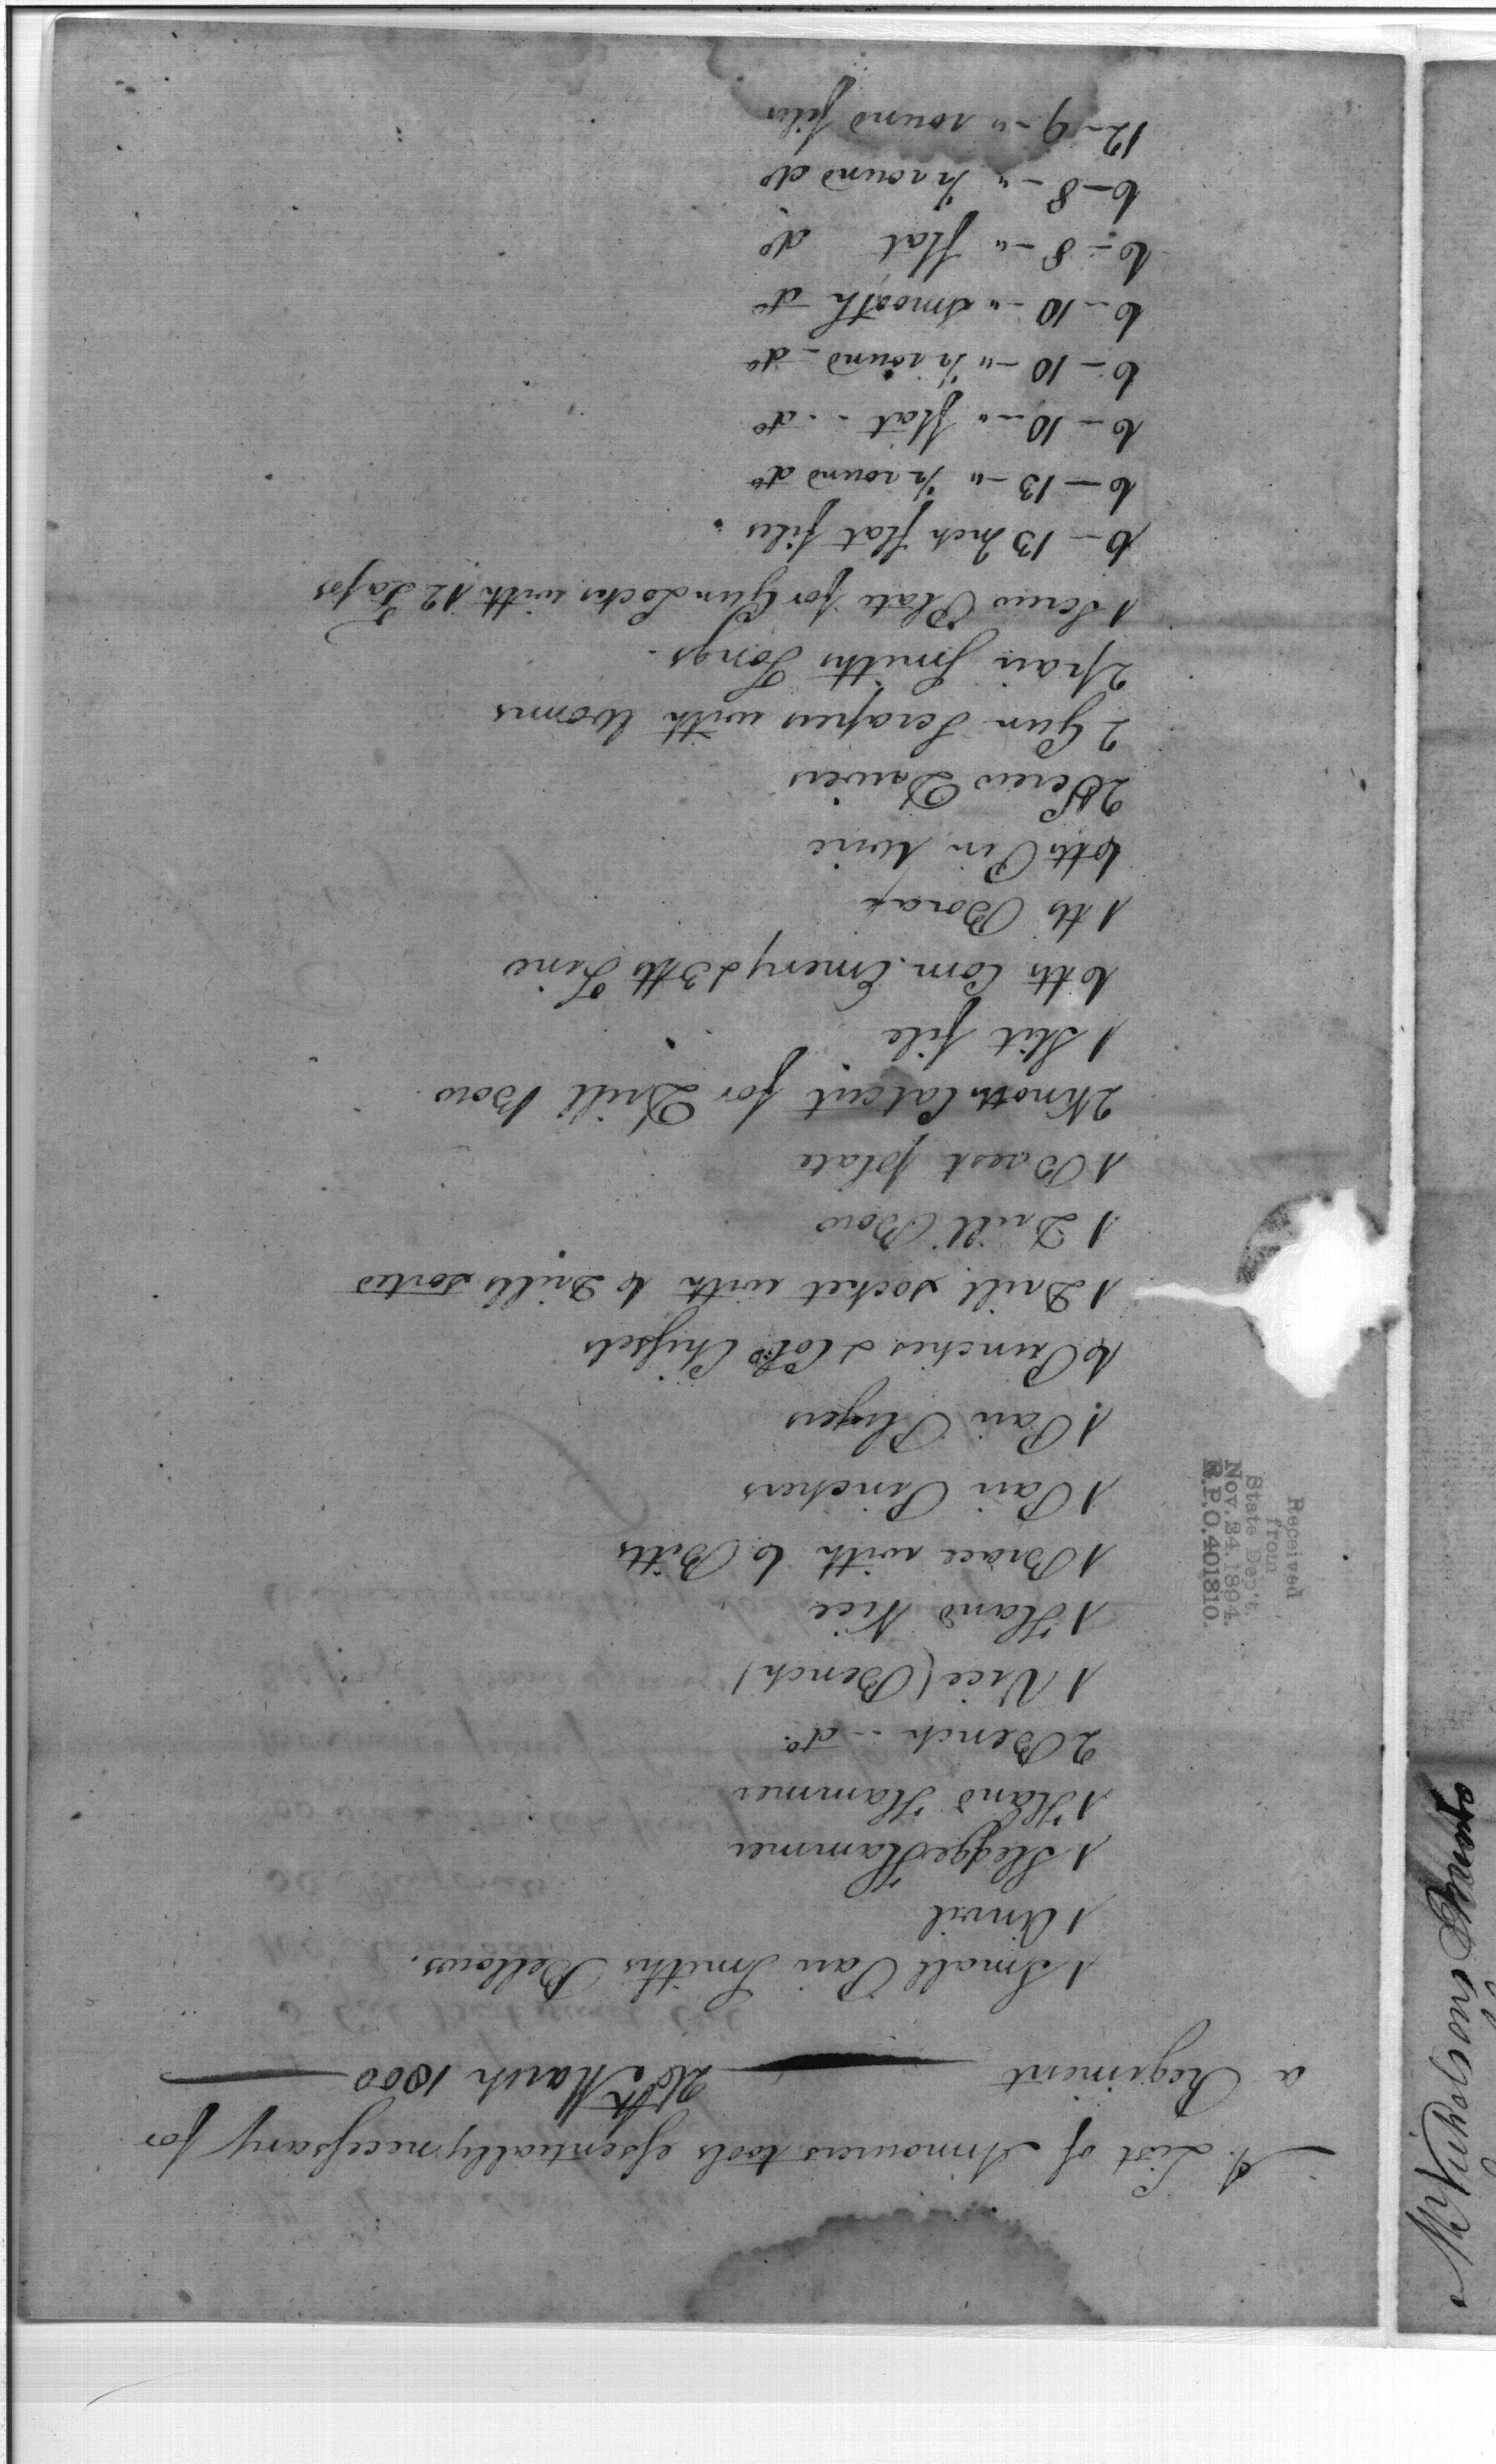 A List of Armourers tools essentially necessary for
a Regiment — 26th March 1800 —
1 Small Pair Smiths Bellows.
1 Anvil
1 Sledge Hammer
1 Hand Hammer
2 Bench -- do.
1 Vice (Bench)
1 Hand Vice
1 Brace with 6 Bitts
1 Pair Pinchers
1 Pair Plyers
6 Punches & Cold Chissels
1 Drill socket with 6 Drills sorted
1 Drill Bow
1 Brest plate
2 Knotts Catcut for Drill Bow
1 Slit file
6 lb Com. Emery & 3 lb Fine
1 lb Borax
6 lb Pin Wire
2 Screw Drivers
2 Gun Scrapers with Worms
2 pair Smiths Tongs.
1 Screw Plate for Gun Locks with 12 Taps
6 — 13 Inch flat files.
6 — 13 —" ½ round do
6 — 10 —" flat - - do
6 — 10 —" ½ round - do
6 — 10 —" smooth do
6 — 8 —" flat do
6 — 8 —" ½ round do
12 — 9 —" round files
Received
from
State Dep't.
Nov. 24. 1894.
R.P.O. 401810.
Mr Nicholson